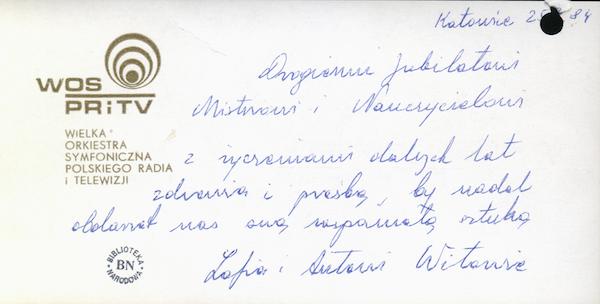 Katowice 84
WOS
PRiTV
WIELKA
ORKIESTRA
SYMFONICZNA
POLSKIEGO RADIA
i TELEWIZJI
Drogiemu Jubilatowi
Mistrzowi i Nauczycielowi
z życzeniami dalszych lat
zdrowia i prośbą, by nadal
obdarzał nas swą wspaniałą sztuką
Zofia i Antoni Witowie
BIBLIOTEKA
BN
NARODOWA